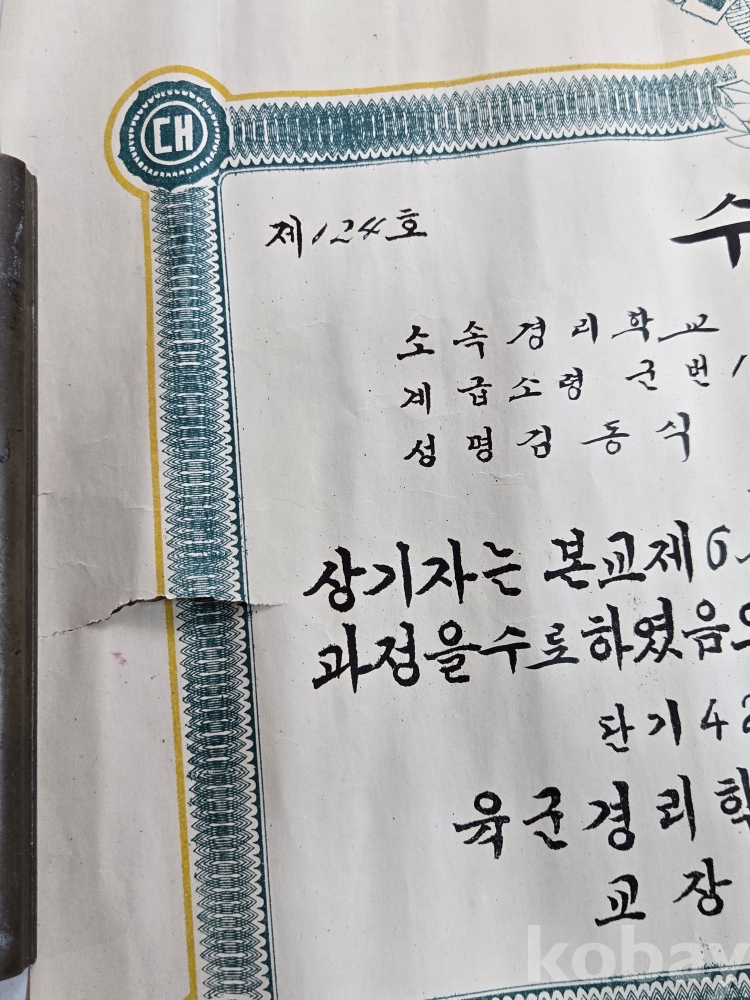 CH
제124호
수
소속 경리학교
계급 소령 군번 1
성명 김동식
상기자는 본교 제6
과정을 수료하였음으
단기 42
육군경리학
교장
kobay